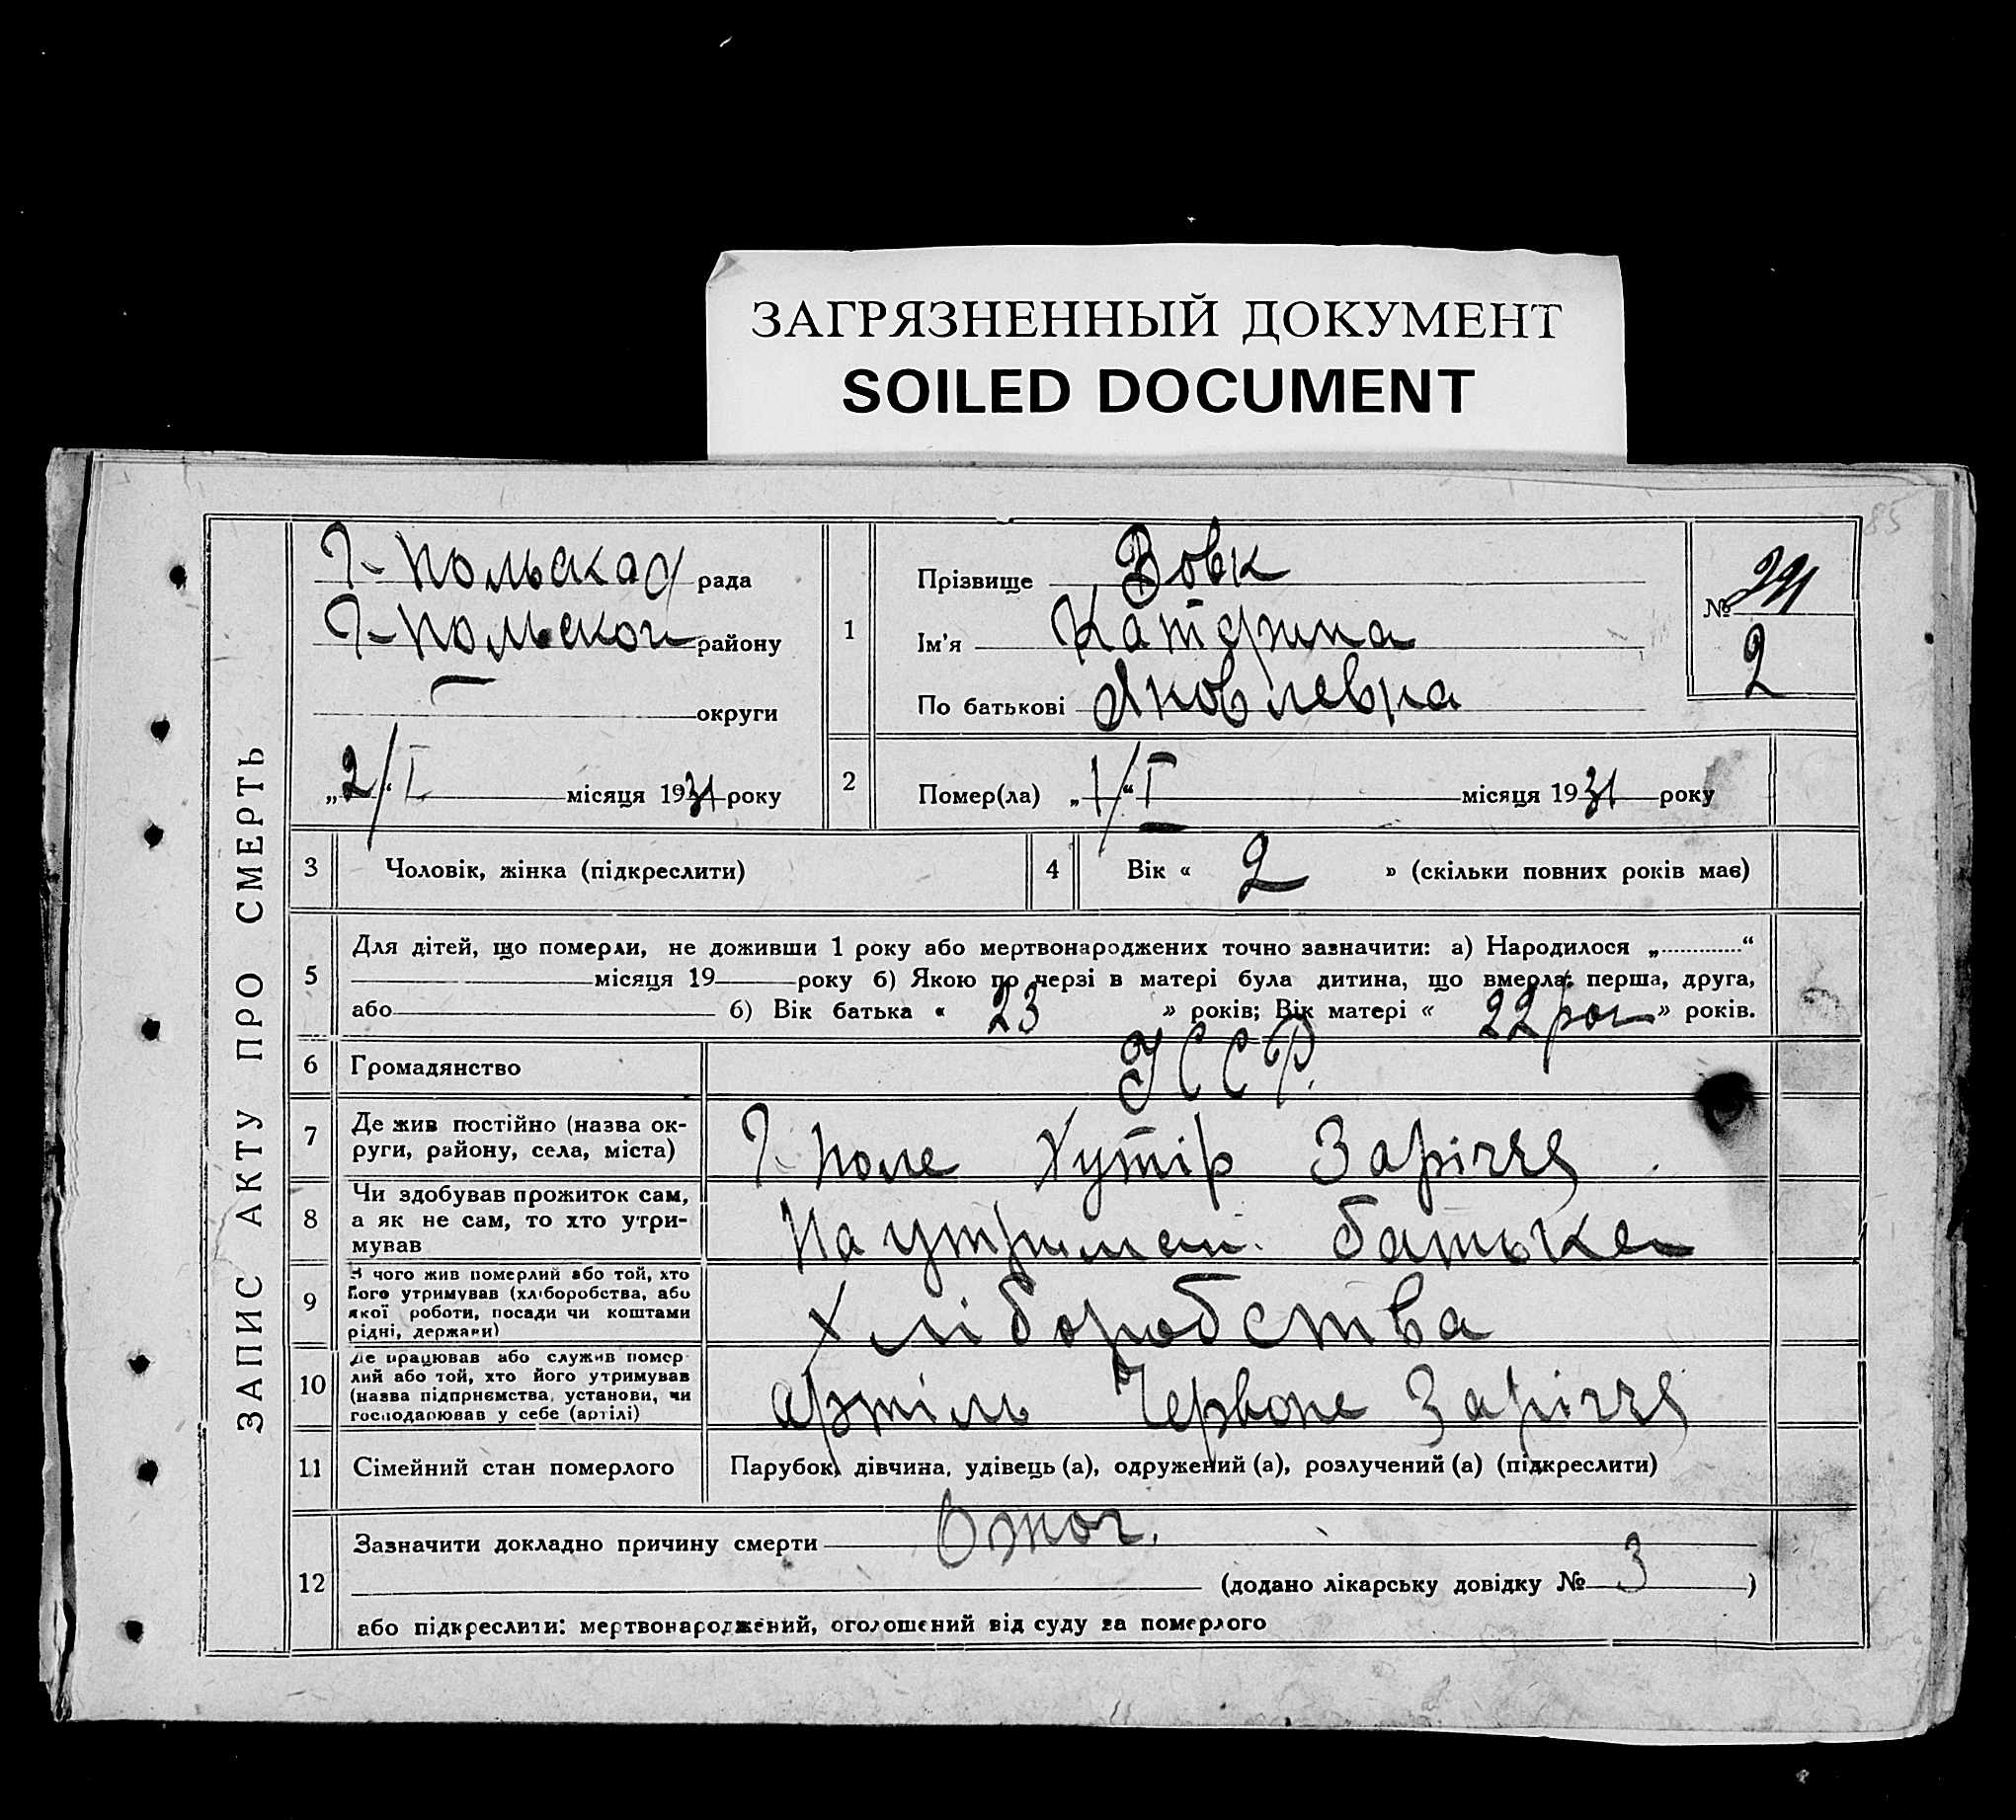 ЗАГРЯЗНЕННЫЙ ДОКУМЕНТ
SOILED DOCUMENT
85
ЗАПИС АКТУ ПРО СМЕРТЬ
Г-Польская рада
Г-Польского району
— округи
„2/“ I місяця 1931 року
1
Прізвище Вовк
Ім'я Катерина
По батькові Яковлевна
№
2
2
Помер(ла) „1/“ I місяця 1931 року
3 Чоловік, жінка (підкреслити)
4 Вік « 2 » (скільки повних років має)
5 Для дітей, що померли, не доживши 1 року або мертвонароджених точно зазначити: а) Народилося „..............“
місяця 19 року б) Якою по черзі в матері була дитина, що вмерла: перша, друга,
або б) Вік батька « 23 » років; Вік матері « 22 рок » років.
6 Громадянство УССР.
7 Де жив постійно (назва ок-
руги, району, села, міста)
Г-Поле Хутір Заріччя
8 Чи здобував прожиток сам,
а як не сам, то хто утри-
мував
На утриман. батька
9 З чого жив померлий або той, хто
його утримував (хліборобства, або
якої роботи, посади чи коштами
рідні, держави)
Хліборобства
10 Де працював або служив помер-
лий або той, хто його утримував
(назва підприємства, установи, чи
господарював у себе (артілі)
артіль Червоне Заріччя
11 Сімейний стан померлого Парубок, дівчина, удівець (а), одружений (а), розлучений (а) (підкреслити)
12 Зазначити докладно причину смерти
(додано лікарську довідку № 3 )
або підкреслити: мертвонароджений, оголошений від суду за померлого